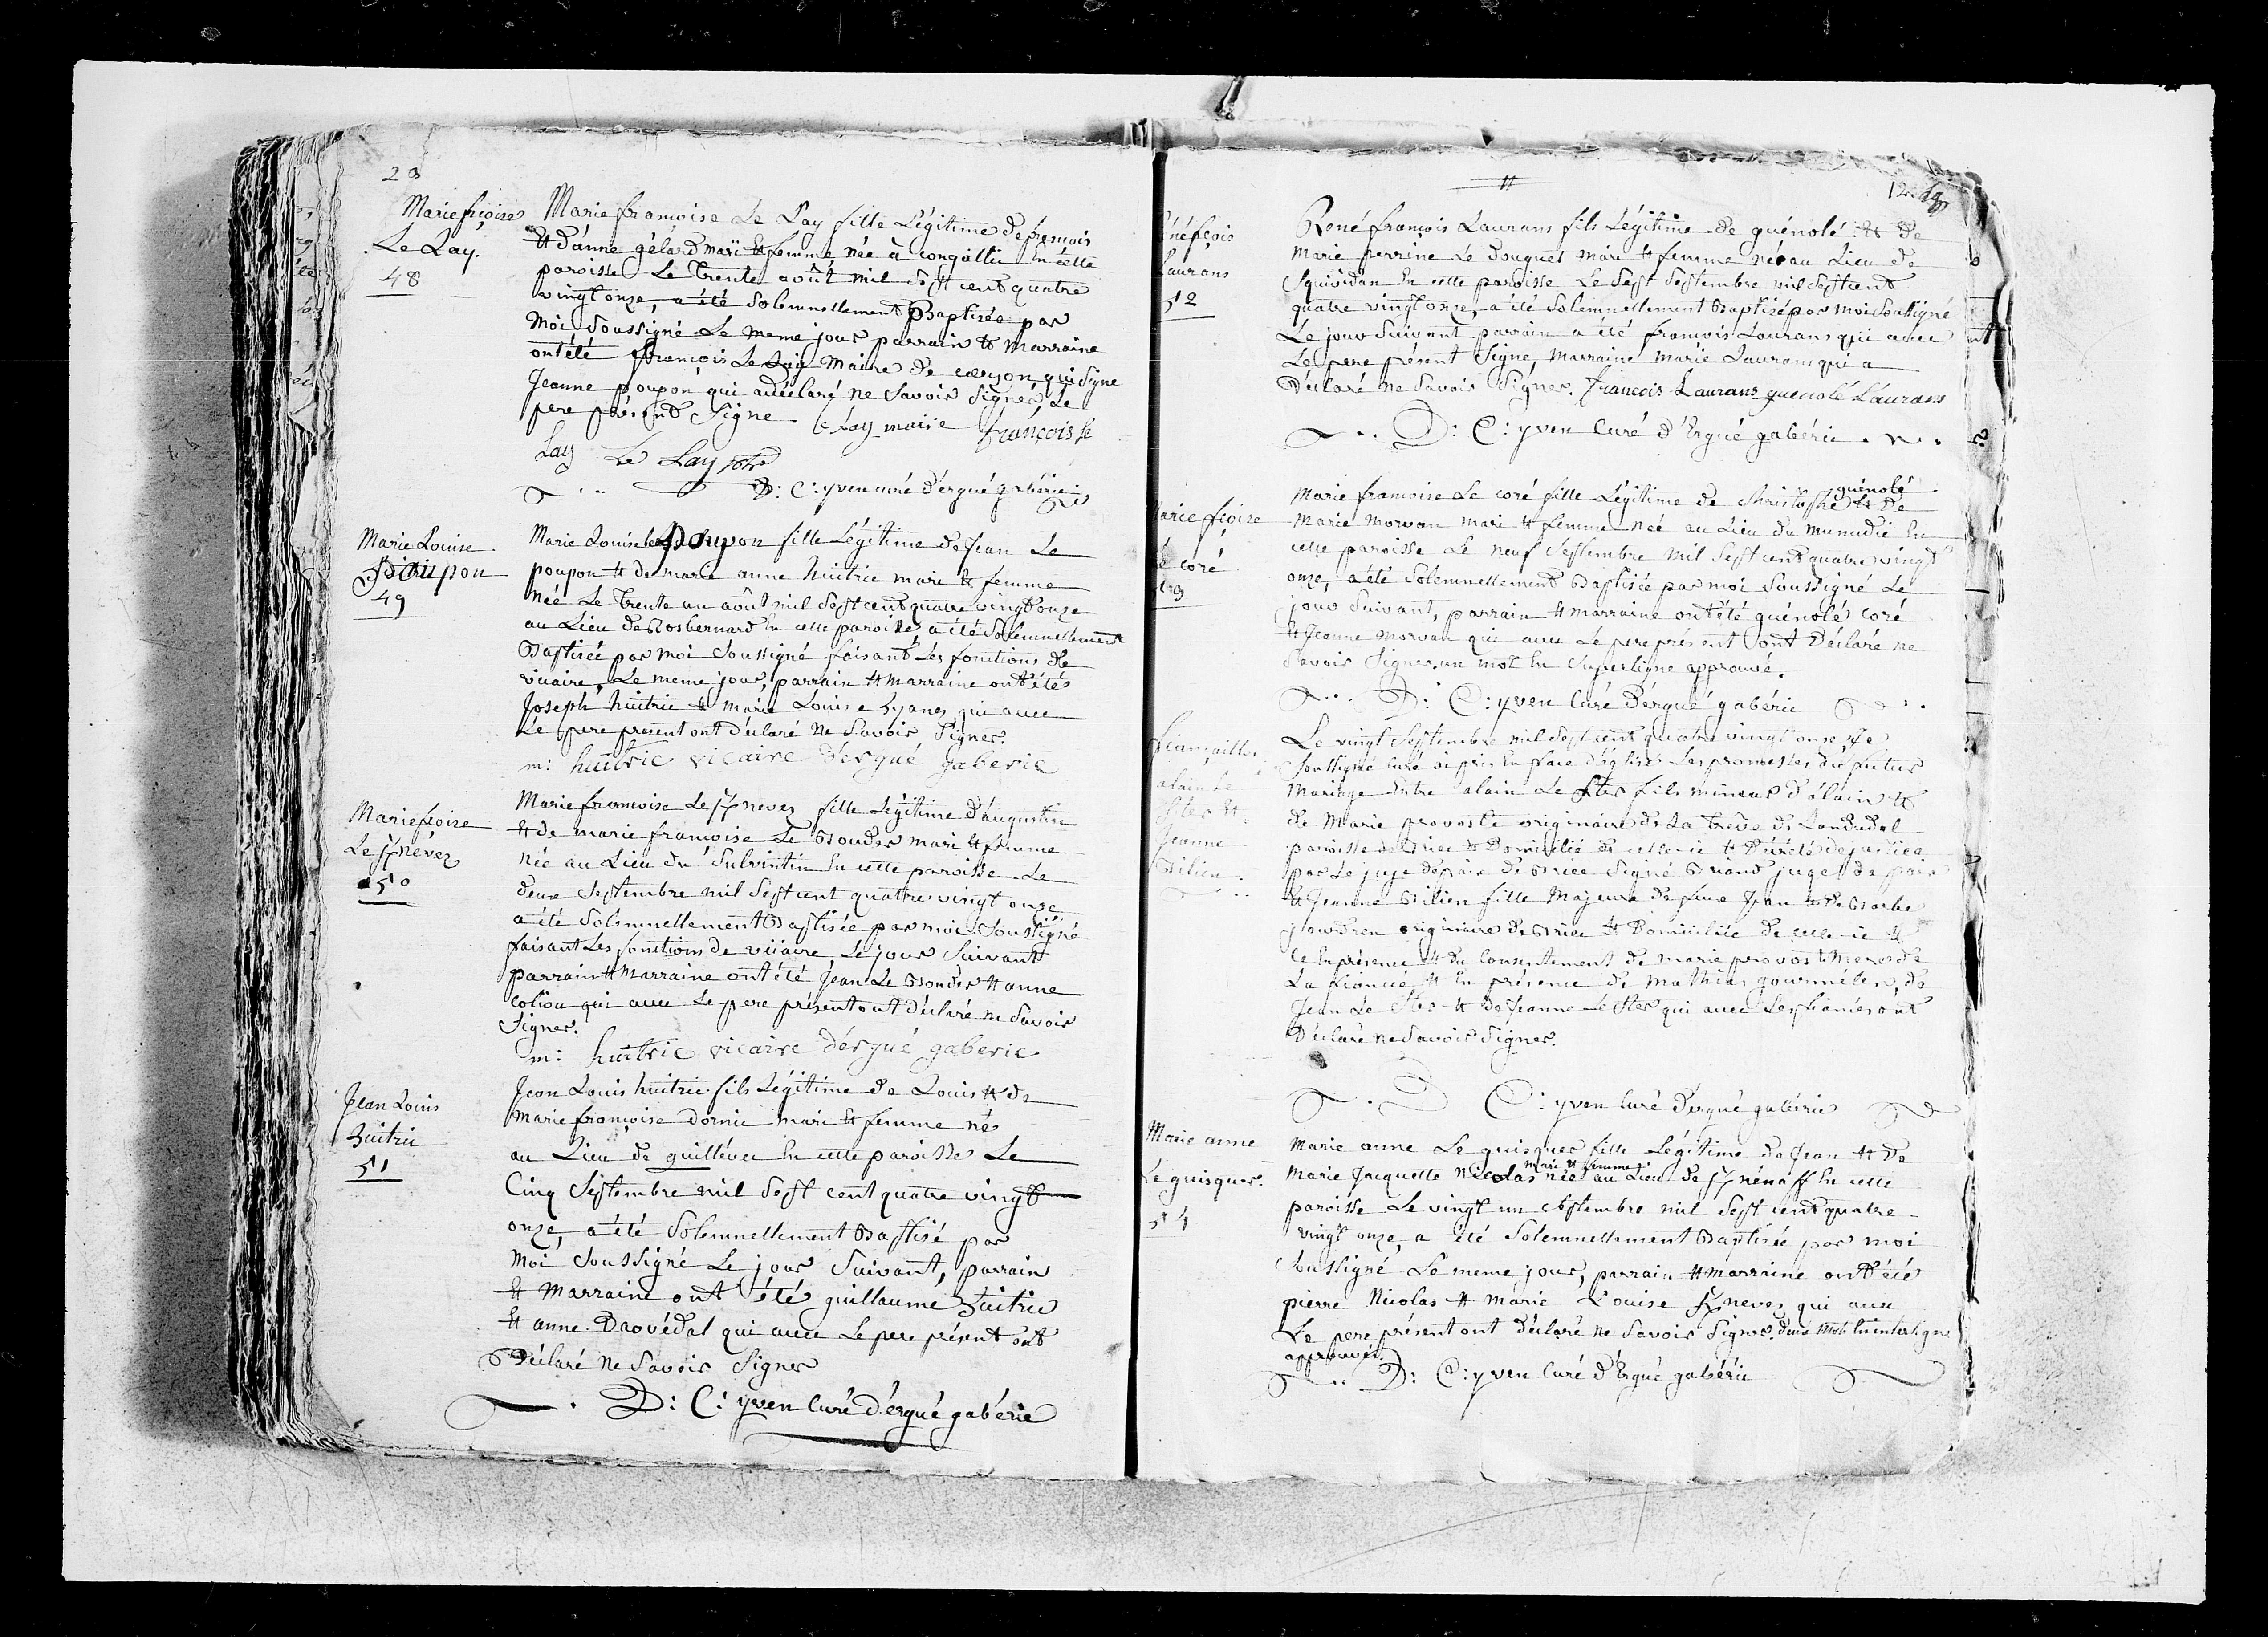 28
Marie fçoise
Le Lay.
48
Marie françoise Le Lay fille Légitime de françois
et d'anne gélard mari et femme née à Congallic en cette
paroisse Le trente août mil sept cent quatre
vingt onze, a été Solemnellement Baptisée par
moi Soussigné Le meme jour parrain et marraine
ont été françois Le Lay maire de qui Signe
Jeanne poupon qui a déclaré ne Savoir Signer, Le
pere présent Signe. Le Lay maire françois Le
Lay Le Lay
D: C: yven curé d'ergué gabéric
Marie Louise
poupon
49
Marie Louise poupon fille Légitime de Jean Le
poupon et de marie anne huitric mari et femme
née Le trente un août mil Sept cent quatre vingt onze
au Lieu de Rosbernard en cette paroisse a été Solemnellement
Baptisée par moi Soussigné faisant Les fonctions de
vicaire, Le meme jour, parrain et marraine ont été
Joseph huitric et marie Louise qui avec
Le pere present ont déclaré ne Savoir Signer.
m: huitric vicaire d'ergué gaberic
Marie fçoise
Le névez
50
Marie françoise Le nevez fille Légitime d'augustin
et de marie françoise Le Bouder mari et femme
née au Lieu du Sulvintin en cette paroisse Le
deux Septembre mil Sept cent quatre vingt onze
a été Solemnellement Baptisée par moi Soussigné
faisant Les fonctions de vicaire, Le jour Suivant
parrain et marraine ont été Jean Le Bouder et anne
coliou qui avec Le pere présent ont déclaré ne Savoir
Signer.
m: huitric vicaire d'ergué gaberic
Jean Louis
huitric
51
Jean Louis huitric fils Légitime de Louis et de
Marie françoise Dornic mari et femme né
au Lieu de quillévec en cette paroisse Le
Cinq Septembre mil Sept cent quatre vingt
onze, a été Solemnellement Baptisé par
Moi Soussigné Le jour Suivant, parrain
et Marraine ont été guillaume huitric
et anne qui avec Le pere présent ont
Déclaré ne Savoir Signer
D: C: yven Curé d'ergué gabéric
né fçois
Laurans
52
René françois Laurans fils Légitime de guénolé et de
Marie perrine Le Douguet mari et femme né au Lieu de
Squividan en cette paroisse Le Sept Septembre mil Sept cent
quatre vingt onze, a été Solemnellement Baptisé par moi Soussigné
Le jour Suivant parrain a été françois Laurans qui avec
Le pere présent Signe, marraine Marie Laurans qui a
Déclaré ne Savoir Signer. françois Laurans guenolé Laurans
D: C: yven Curé d'Ergué gabéric
arie fçoise
Le coré
53
guénolé
Marie françoise Le coré fille Légitime de Christophe et De
Marie Morvan mari et femme née au Lieu du Munudic en
cette paroisse Le neuf Septembre mil Sept cent quatre vingt
onze, a été Solemnellement Baptisée par moi Soussigné Le
jour Suivant, parrain et marraine ont été guénolé coré
et Jeanne Morvan qui avec Le pere présent ont Déclaré ne
Savoir Signer, un mot en Superligne approuvé.
D: C: yven Curé d'ergué gabéric
fiançailles
alain Le
Ster et
Jeanne
Bilien.
Le vingt Septembre mil Sept cent quatre vingt onze, Je
Soussigné Curé ai pris en face d'église Les promesses du futur
Mariage entre alain Le Ster fils mineur d'alain et
de Marie provost originaire de La Trève de Landudal
paroisse de Briec et Domicilié de celle-ci et Décrété de justice
par Le juge de paix de Briec Signé Briand juge de paix
et Jeanne Bilien fille Majeure de feu Jean et de Barbe
jaouhen originaire de Briec et Domiciliée de celle-ci et
Ce en présence et du Consentement de marie provost Mere de
La fiancé et en présence de Mathias gourmélen, de
Jean Le Ster et de Jeanne Le Ster qui avec Les fiancés ont
Déclaré ne Savoir Signer.
D C: yven Curé d'ergué gabéric
Marie anne
Le guisquer.
54
Marie anne Le guisquer fille Légitime de Jean et de
mari et femme
Marie Jacquette Nicolas née au Lieu de en cette
paroisse Le vingt un Septembre mil Sept cent quatre
vingt onze, a été Solemnellement Baptisée par moi
Soussigné Le meme jour, parrain et marraine ont été
pierre Nicolas et Marie Louise nevez qui avec
Le pere présent ont déclaré ne Savoir Signer. deux mots en interligne
approuvés.
D: C: yven Curé d'Ergué gabéric